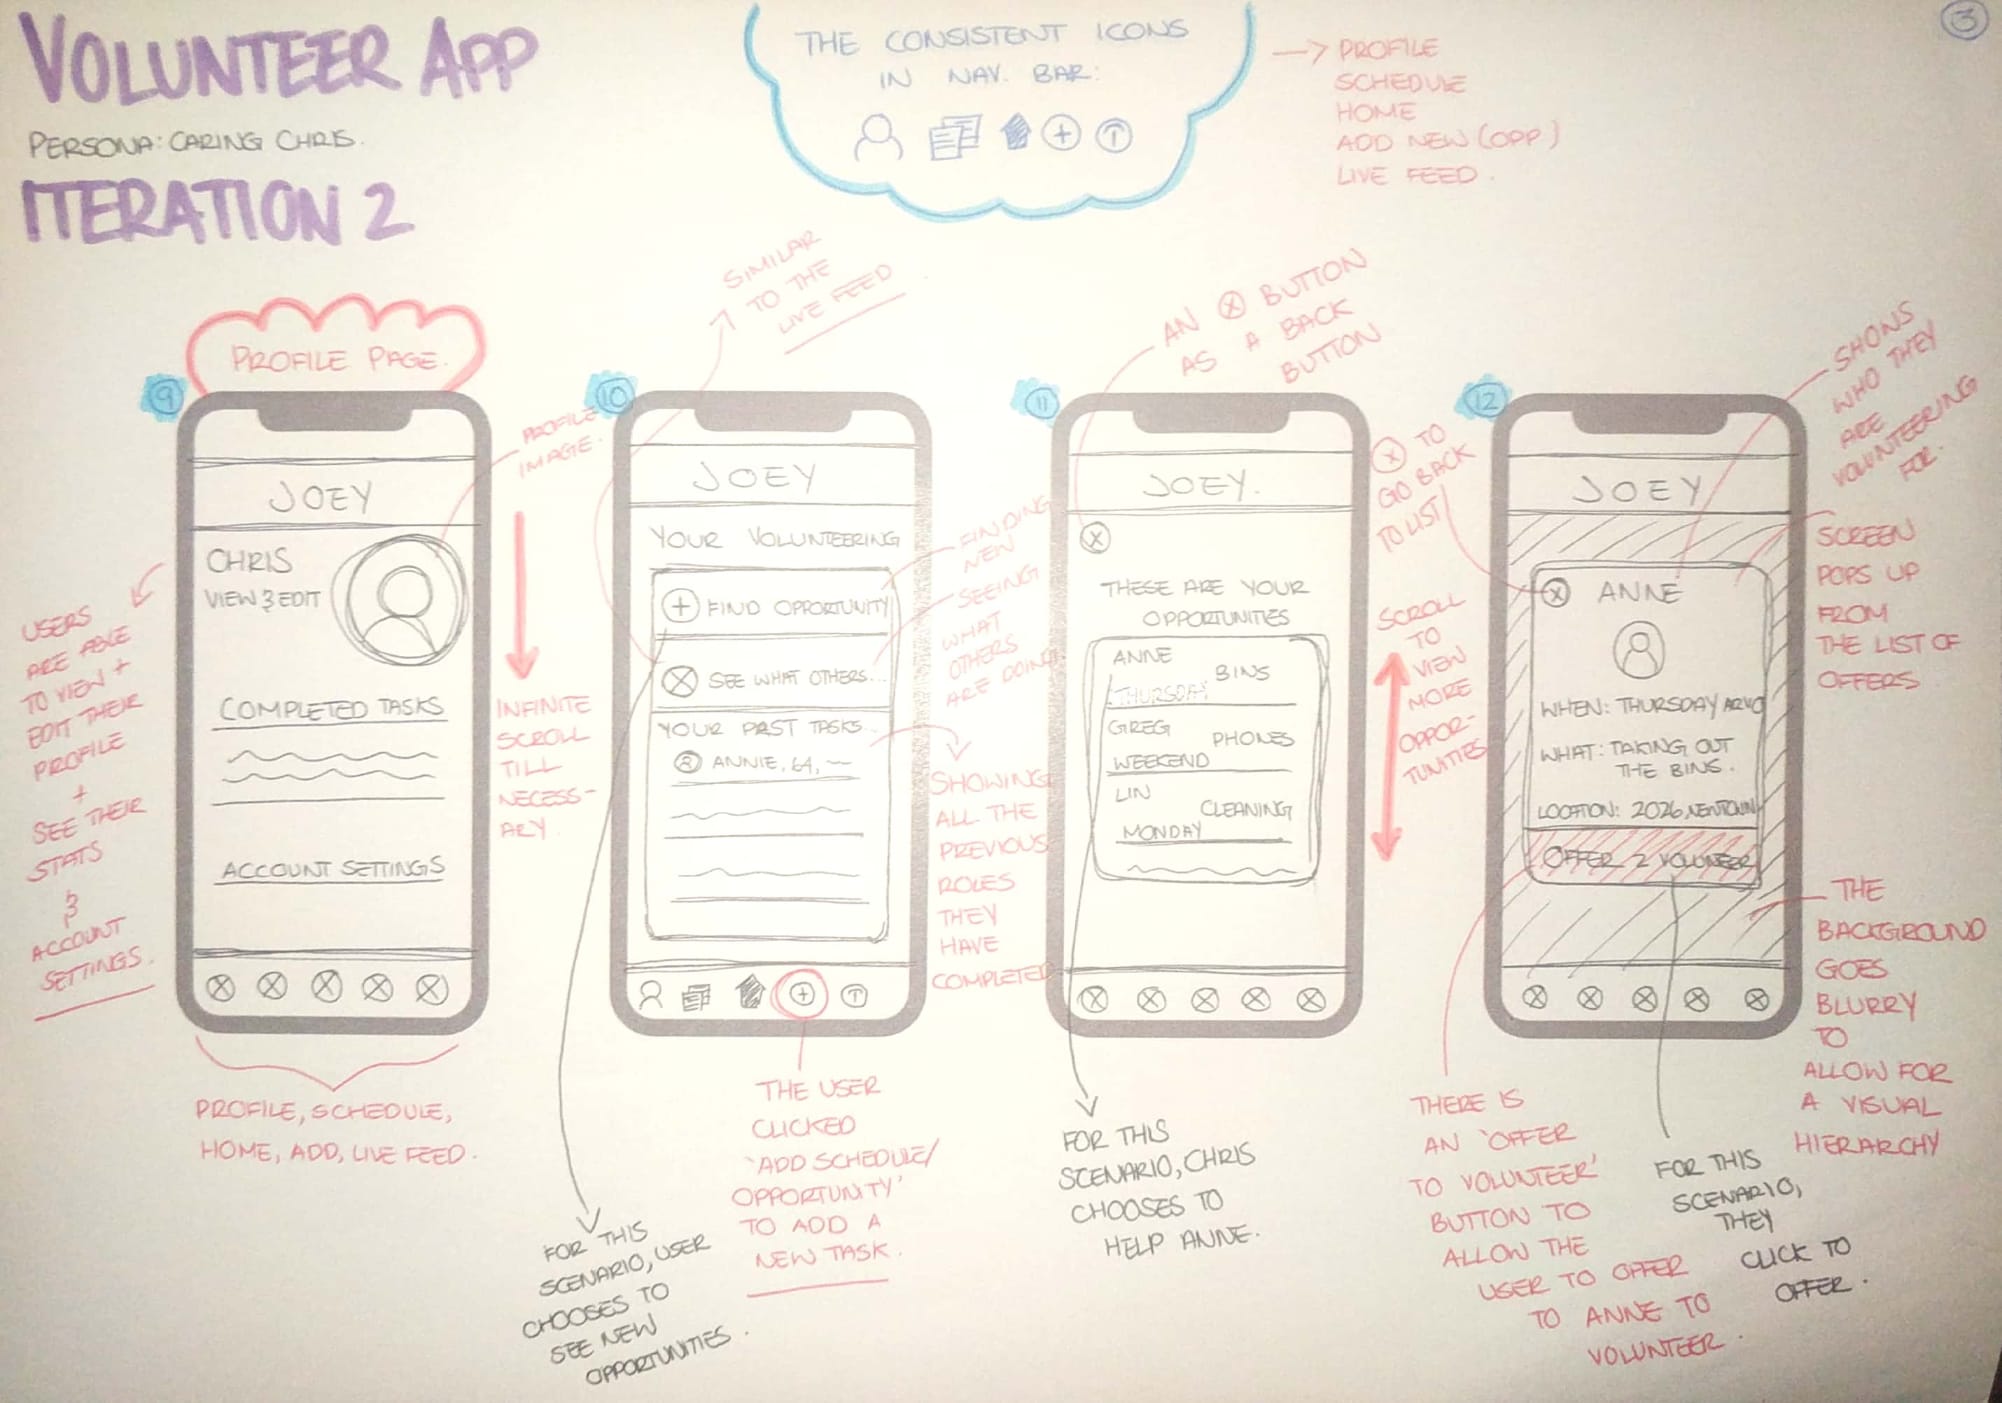 VOLUNTEER APP
PERSONA: CARING CHRIS.
ITERATION 2
THE CONSISTENT ICONS
IN NAV. BAR:
→ PROFILE
SCHEDULE
HOME
ADD NEW (OPP.)
LIVE FEED.
3
PROFILE PAGE.
9
JOEY
CHRIS
VIEW & EDIT
COMPLETED TASKS
ACCOUNT SETTINGS
PROFILE
IMAGE.
USERS
ARE ABLE
TO VIEW +
EDIT THEIR
PROFILE
+
SEE THEIR
STATS
&
ACCOUNT
SETTINGS.
INFINITE
SCROLL
TILL
NECESS-
ARY.
PROFILE, SCHEDULE,
HOME, ADD, LIVE FEED.
SIMILAR
TO THE
LIVE FEED
10
JOEY
YOUR VOLUNTEERING
+ FIND OPPORTUNITY
SEE WHAT OTHERS...
YOUR PAST TASKS.
ANNIE, 64, ~
FINDING
NEW
SEEING
WHAT
OTHERS
ARE DOING
SHOWING
ALL THE
PREVIOUS
ROLES
THEY
HAVE
COMPLETED
FOR THIS
SCENARIO, USER
CHOOSES TO
SEE NEW
OPPORTUNITIES.
THE USER
CLICKED
'ADD SCHEDULE/
OPPORTUNITY'
TO ADD A
NEW TASK.
AN ⓧ BUTTON
AS A BACK
BUTTON
11
JOEY.
ⓧ
THESE ARE YOUR
OPPORTUNITIES
ANNE
BINS
THURSDAY
GREG
PHONES
WEEKEND
LIN
CLEANING
MONDAY
SCROLL
TO
VIEW
MORE
OPPOR-
TUNITIES
FOR THIS
SCENARIO, CHRIS
CHOOSES TO
HELP ANNE.
ⓧ TO
GO BACK
TO LIST
12
JOEY
ⓧ ANNE
WHEN: THURSDAY ARVO
WHAT: TAKING OUT
THE BINS.
LOCATION: 2026, NEWTOWN
OFFER 2 VOLUNTEER
SHOWS
WHO THEY
ARE
VOLUNTEERING
FOR.
SCREEN
POPS UP
FROM
THE LIST OF
OFFERS
THE
BACKGROUND
GOES
BLURRY
TO
ALLOW FOR
A VISUAL
HIERARCHY
THERE IS
AN 'OFFER
TO VOLUNTEER'
BUTTON TO
ALLOW THE
USER TO OFFER
TO ANNE TO
VOLUNTEER.
FOR THIS
SCENARIO,
THEY
CLICK TO
OFFER.